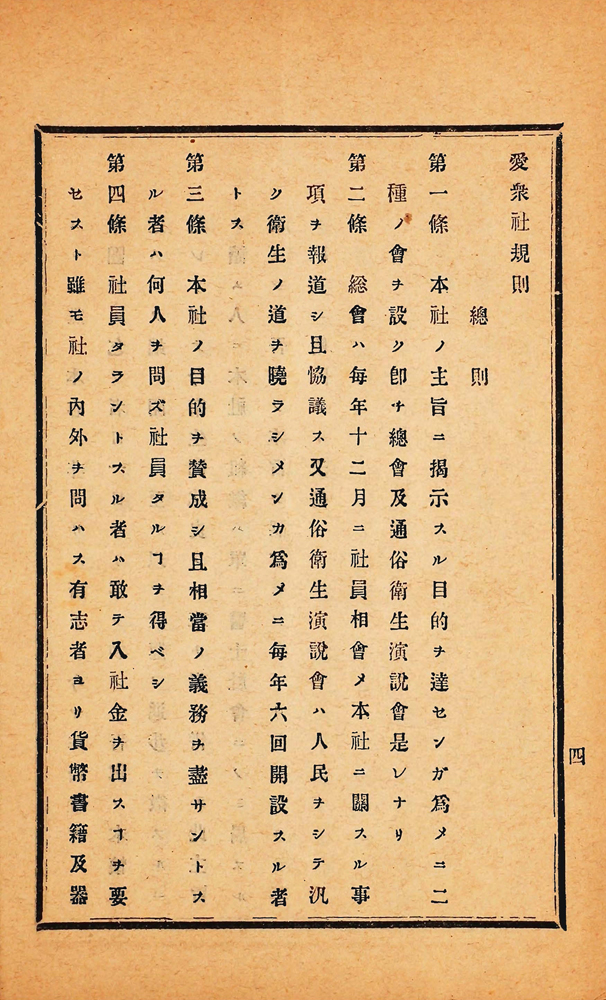 愛衆社規則
總則
第一條　本社ノ主旨ニ揭示スル目的ヲ達センガ爲メニ二
種ノ會ヲ設ク卽チ總會及通俗衛生演說會是レナリ
第二條　総會ハ每年十二月ニ社員相會メ本社ニ關スル事
項ヲ報道シ且恊議ス又通俗衛生演說會ハ人民ヲシテ汎
ク衛生ノ道ヲ曉ラシメンカ爲メニ每年六回開設スル者
トス
第三條　本社ノ目的ヲ賛成シ且相當ノ義務ヲ盡サントス
ル者ハ何人ヲ問ズ社員タルヿヲ得ベシ
第四條　社員タラントスル者ハ敢テ入社金ヲ出スヿヲ要
セスト雖モ社ノ內外ヲ問ハス有志者ヨリ貨幣書籍及器
四